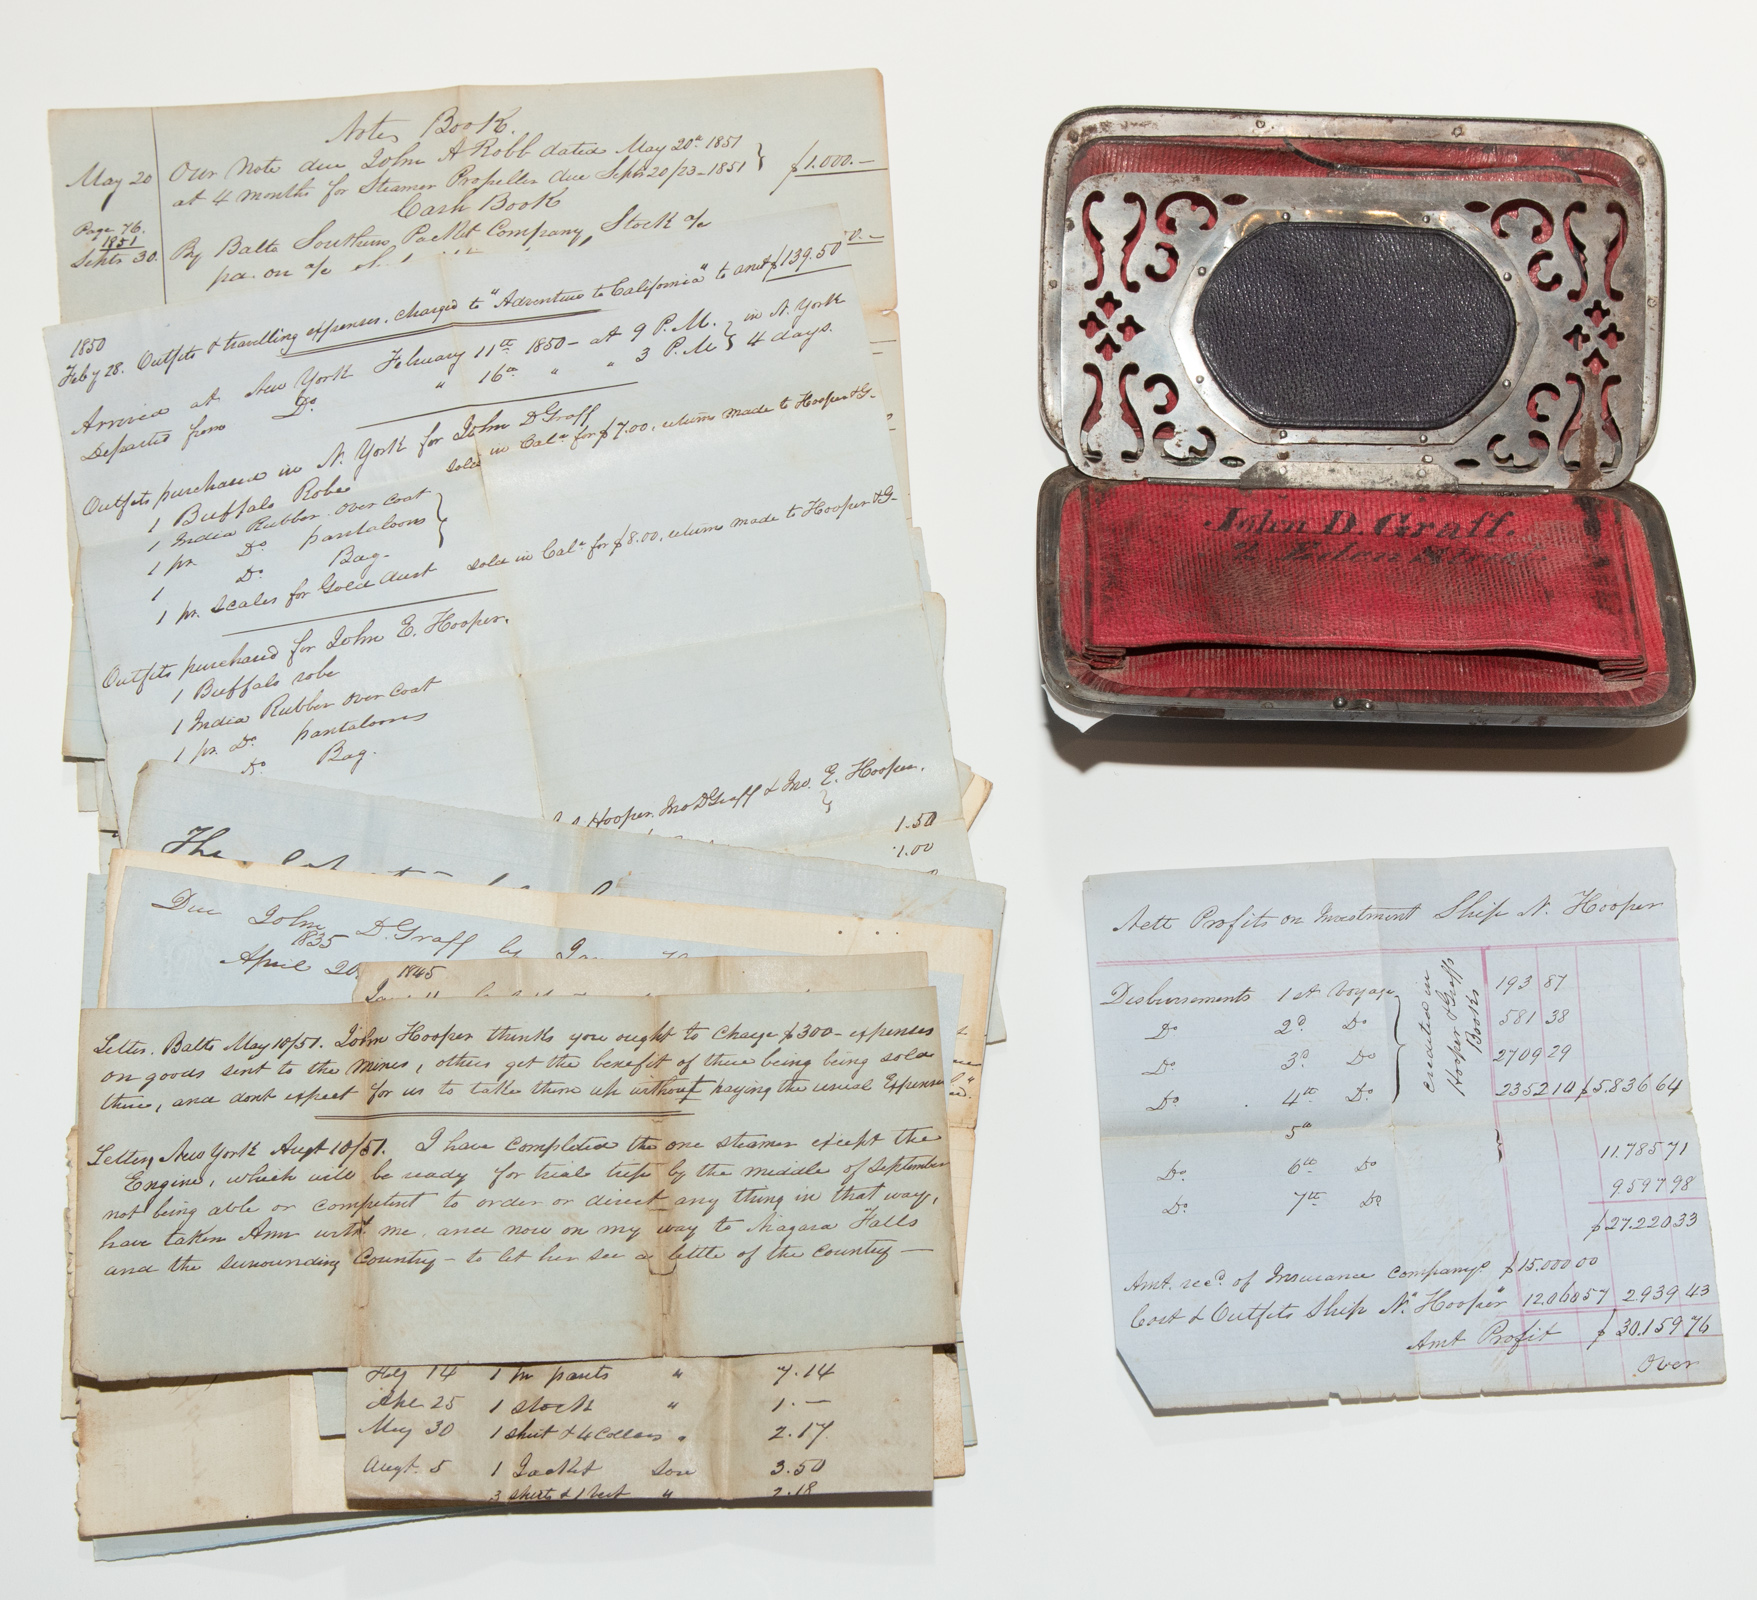 Notes Book.
May 20 Our Note due John A Robb dated May 20th 1851
at 4 months for Steamer Propeller due Septr 20/23-1851 } $1.000.-
Cash Book
Page 76.
1851
Septr 30. By Balto Southern Packet Company, Stock a/c
pd. on a/c of
0.-
1850
Feby 28. Outfits & travelling expenses. charged to "Adventure to California" to amt $139.50
Arrived at New York February 11th 1850 - at 9 P.M. } in N. York
Departed from Do " 16th " " 3 P.M } 4 days.
Outfits purchased in N. York for John D Graff
1 Buffalo Robe sold in Cala for $7.00, return made to Hooper & G-
1 India Rubber over Coat
1 pr. Do pantaloons
1 Do Bag.
1 pr. Scales for Gold dust sold in Cala for $8.00, return made to Hooper & G-
Outfits purchased for John E. Hooper.
1 Buffalo robe
1 India Rubber over Coat
1 pr. Do pantaloons
Do Bag.
Hooper. Jno D Graff & Jno. E. Hooper.
1.50
1.00
The
Due John D. Graff by
1835
April 20
1845
Letter. Balto May 10/51. John Hooper thinks you ought to Charge $300- expenses
on goods sent to the Mines, others get the benefit of there being being sold
there, and dont expect for us to take them up without paying the usual Expenses
Letter, New York Augt 10/51. I have completed the one steamer except the
Engine, which will be ready for trial trip by the middle of September
not being able or competent to order or direct any thing in that way,
have taken Ann with me. and now on my way to Niagara Falls
and the surrounding Country - to let her see a little of the Country -
Feby 14 1 pr pants " 7.14
Ap 25 1 stock " 1.-
May 30 1 shirt & 4 Collars " 2.17
Augt. 5 1 Jacket 3.50
3 shirts & 1 vest " 2.18
John D. Graff.
Nett Profits on Investment Ship N. Hooper
Disbursements 1st Voyage 193 87
Do 2d Do 581 38
Do 3d Do 2709 29
Do 4th Do 2352 10 $5.836 64
credited in
Hooper & Graff
Books
5th
Do 6th Do 11.785 71
Do 7th Do 9.597 98
$27.220 33
Amt. recd. of Insurance Company. $15.000 00
Cost & Outfits Ship "N. Hooper" 12.060 57 2939 43
Amt Profit $ 30.159 76
Over